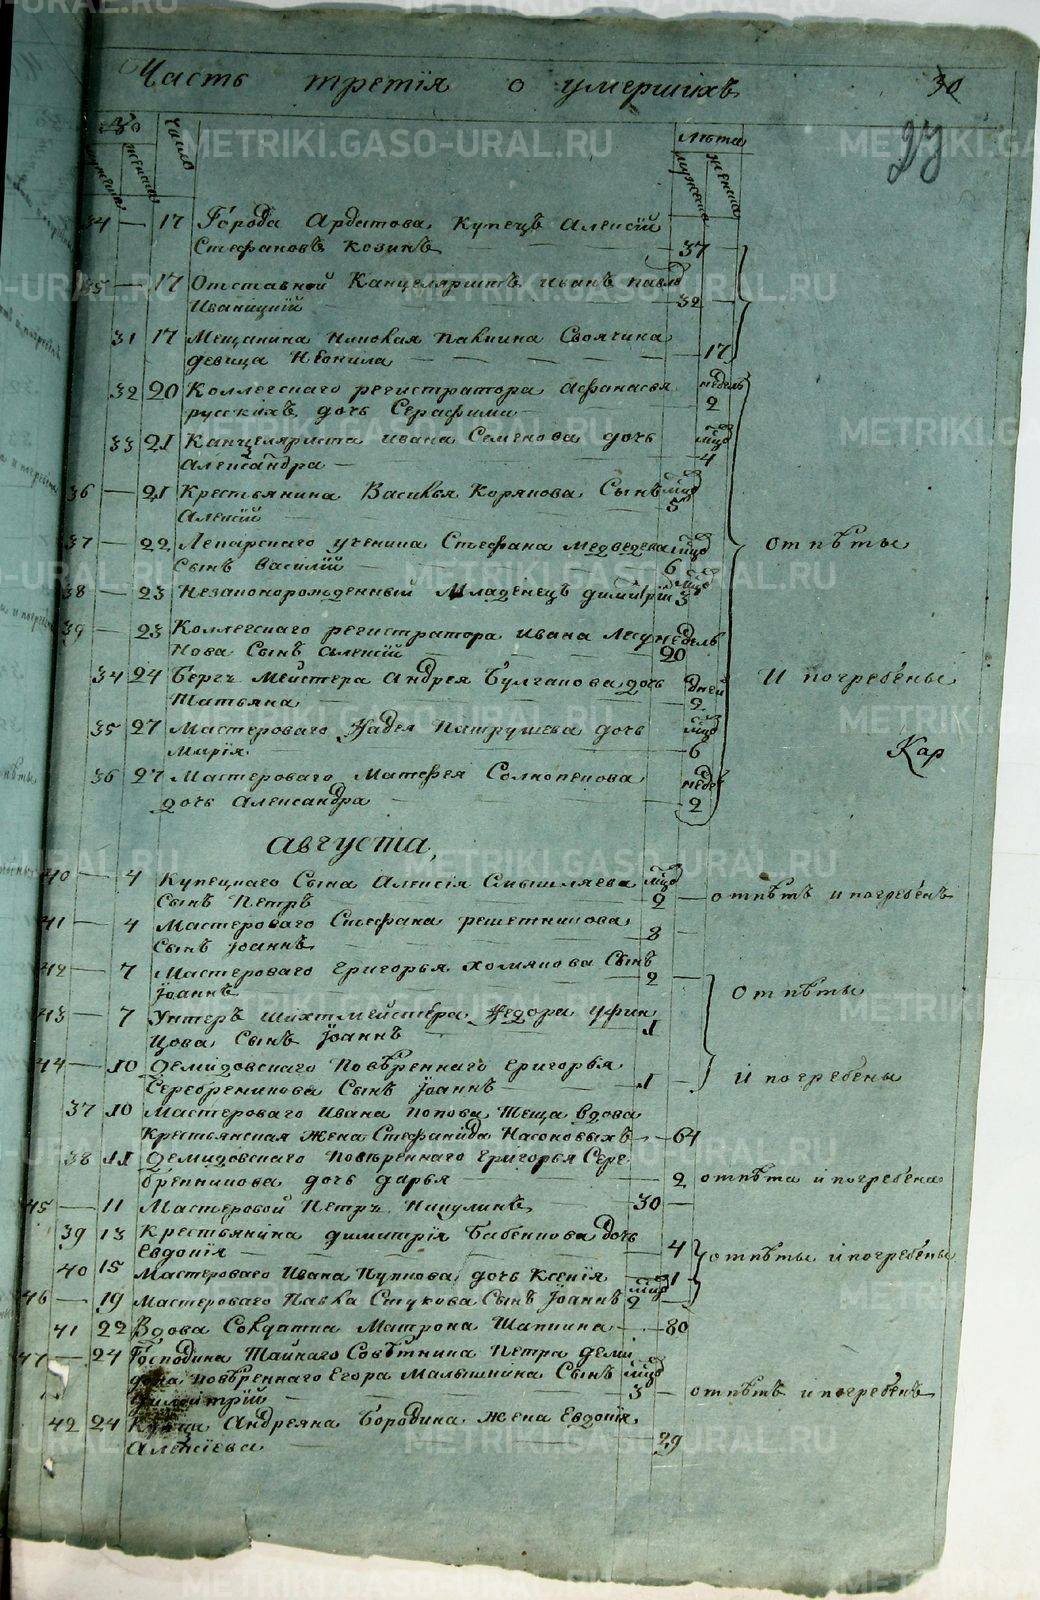 Часть третія о умершихъ
30
27
№ Число Лѣта
мужеска женска мужеска женска
34 — 17 Города Ардатова купецъ Алексій
Стефановъ Козинъ — 37
35 — 17 Отставной Канцеляристъ Иванъ Павло
Иваницкій — 32
31 17 Мещанина Николая Пакина Своячина
девица Неонила — 17
32 20 Коллегскаго регистратора Афанасья недель
русскихъ дочь Серафима 2
33 21 Канцеляриста Ивана Семенова дочь мцов
Александра — 4
36 — 21 Крестьянина Василья Корякова Сынъ мцов
Алексій 5
37 — 22 Лекарскаго ученика Стефана Медведева мцов
Сынъ Василій 6
отпѣты
38 — 23 Незаконорожденный Младенецъ Димитрій мцов 3
39 — 23 Коллегскаго регистратора Ивана недель
нова Сынъ Алексій 20
34 24 Бергъ Мейстера Андрея Булгакова дочь дней
Татьяна — 2
И погребены
35 27 Мастероваго Фадея Патрушева дочь мцов
Марія 6
Кар
36 27 Мастероваго Матфея Солнопекова недель
дочь Александра — 2
Августа,
40 — 4 Купецкаго Сына Алексія Смышляева мцов
Сынъ Петръ — 2 — отпѣтъ и погребенъ
41 — 4 Мастероваго Стефана решетникова
Сынъ Іоаннъ — 8 —
42 — 7 Мастероваго Григорья Хомякова Сынъ
Іоаннъ — 2 —
отпѣты
43 — 7 Унтеръ Шихтмейстера Федора Уфин
цова Сынъ Іоаннъ — 1
44 — 10 Демидовскаго Повѣреннаго Григорья
Серебреникова Сынъ Іоаннъ — 1 —
и погребены
37 10 Мастероваго Ивана Попова Теща вдова
Крестьянская жена Стефанида Насоновыхъ — 64
38 11 Демидовскаго Повѣреннаго Григорья Сере
бренникова дочь Дарья — 2 отпѣта и погребена
45 — 11 Мастеровой Петръ Никулинъ, 30 —
39 13 Крестьянина Димитрія Бабенкова дочь
Евдокія — 4
отпѣты и погребены
40 15 Мастероваго Ивана Пупкова, дочь Ксенія — 1
46 — 19 Мастероваго Павла Стукова Сынъ Іоаннъ мцов 2 —
41 22 Вдова Солдатка Матрона Шапкина — 80
47 — 24 Господина Тайнаго Совѣтника Петра Деми
дова повѣреннаго Егора Малышкина Сынъ мцов
Димитрій — 3 — отпѣтъ и погребенъ
42 24 Купца Андреяна Бородина жена Евдокія
Алексіева — 29
METRIKI.GASO-URAL.RU